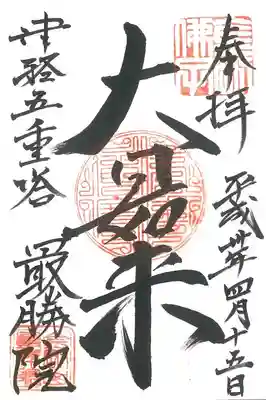 奉拝
平成年四月十五日
大日如来
津軽五重塔
最勝院